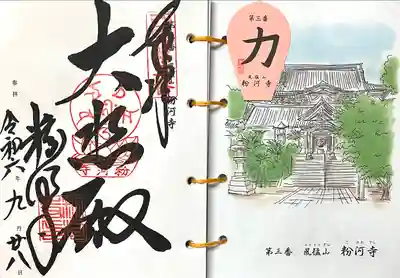 奉拝
大悲殿
粉河寺
令和六年九月廿八日
第三番
力
風猛山
粉河寺
第三番 風猛山 粉河寺